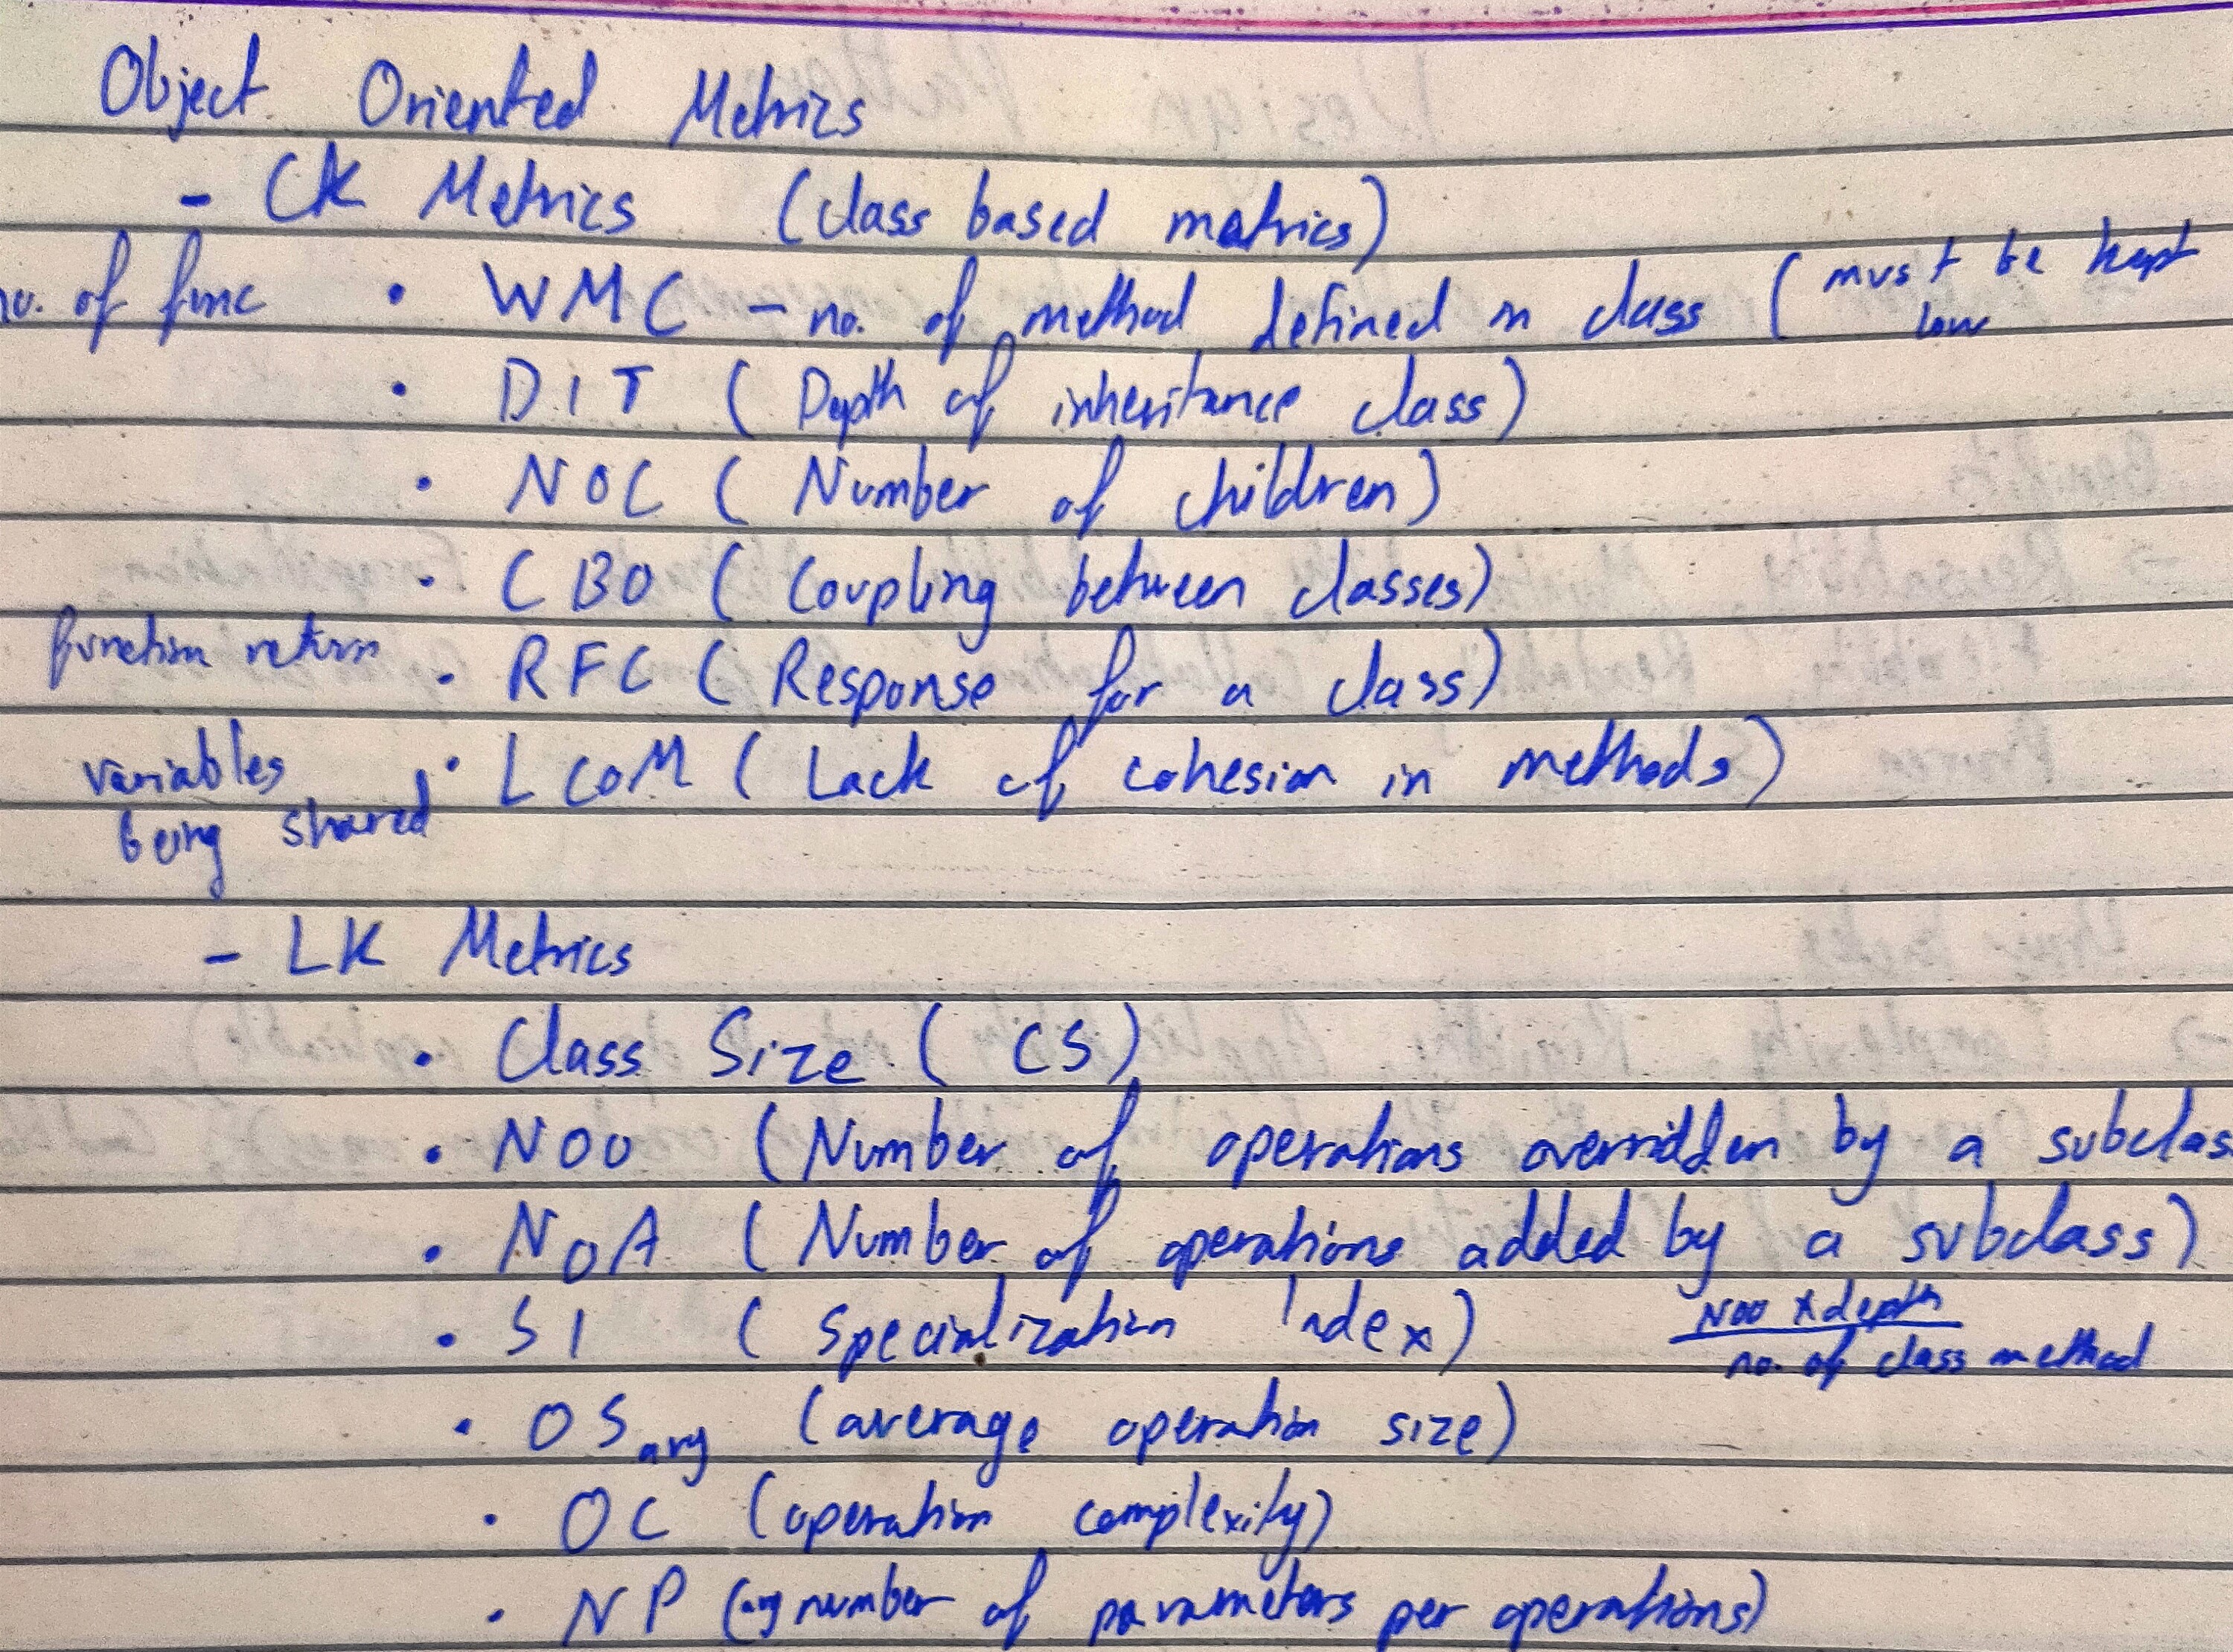 Object Oriented Metrics
- CK Metrics (class based metrics)
no. of func • WMC - no. of method defined in class (must be kept low
• DIT (Depth of inheritance class)
• NOC (Number of children)
• CBO (Coupling between classes)
function return • RFC (Response for a class)
variables being shared • LCOM (Lack of cohesion in methods)
- LK Metrics
• Class Size (CS)
• NOO (Number of operations overridden by a subclass
• NOA (Number of operations added by a subclass)
• SI (Specialization Index) NOO x depth
no. of class method
• OS avg (average operation size)
• OC (operation complexity)
• NP (avg number of parameters per operations)